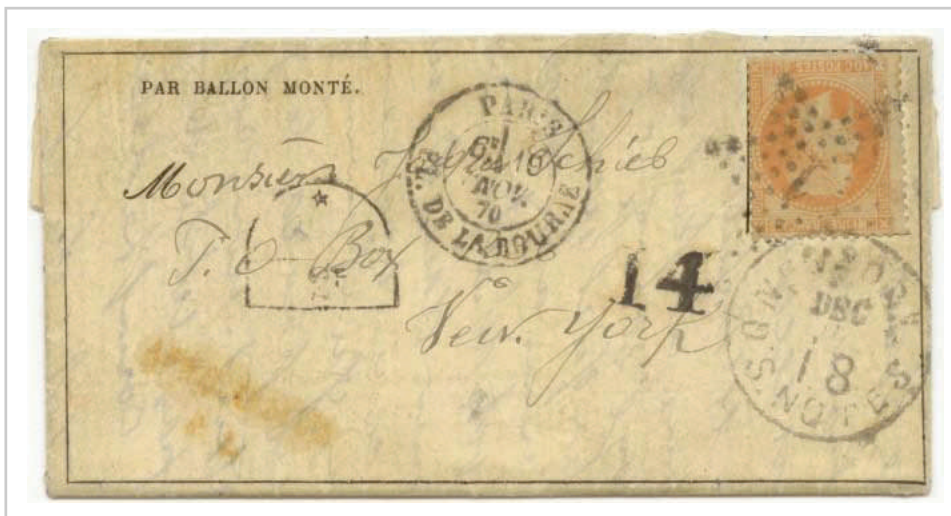 PAR BALLON MONTÉ.
PARIS
6E
NOV.
70
PL. DE LA BOURSE
Monsieur
P.O. Box
New. York
14
NEW YORK
DEC
18
U.S. NOTES